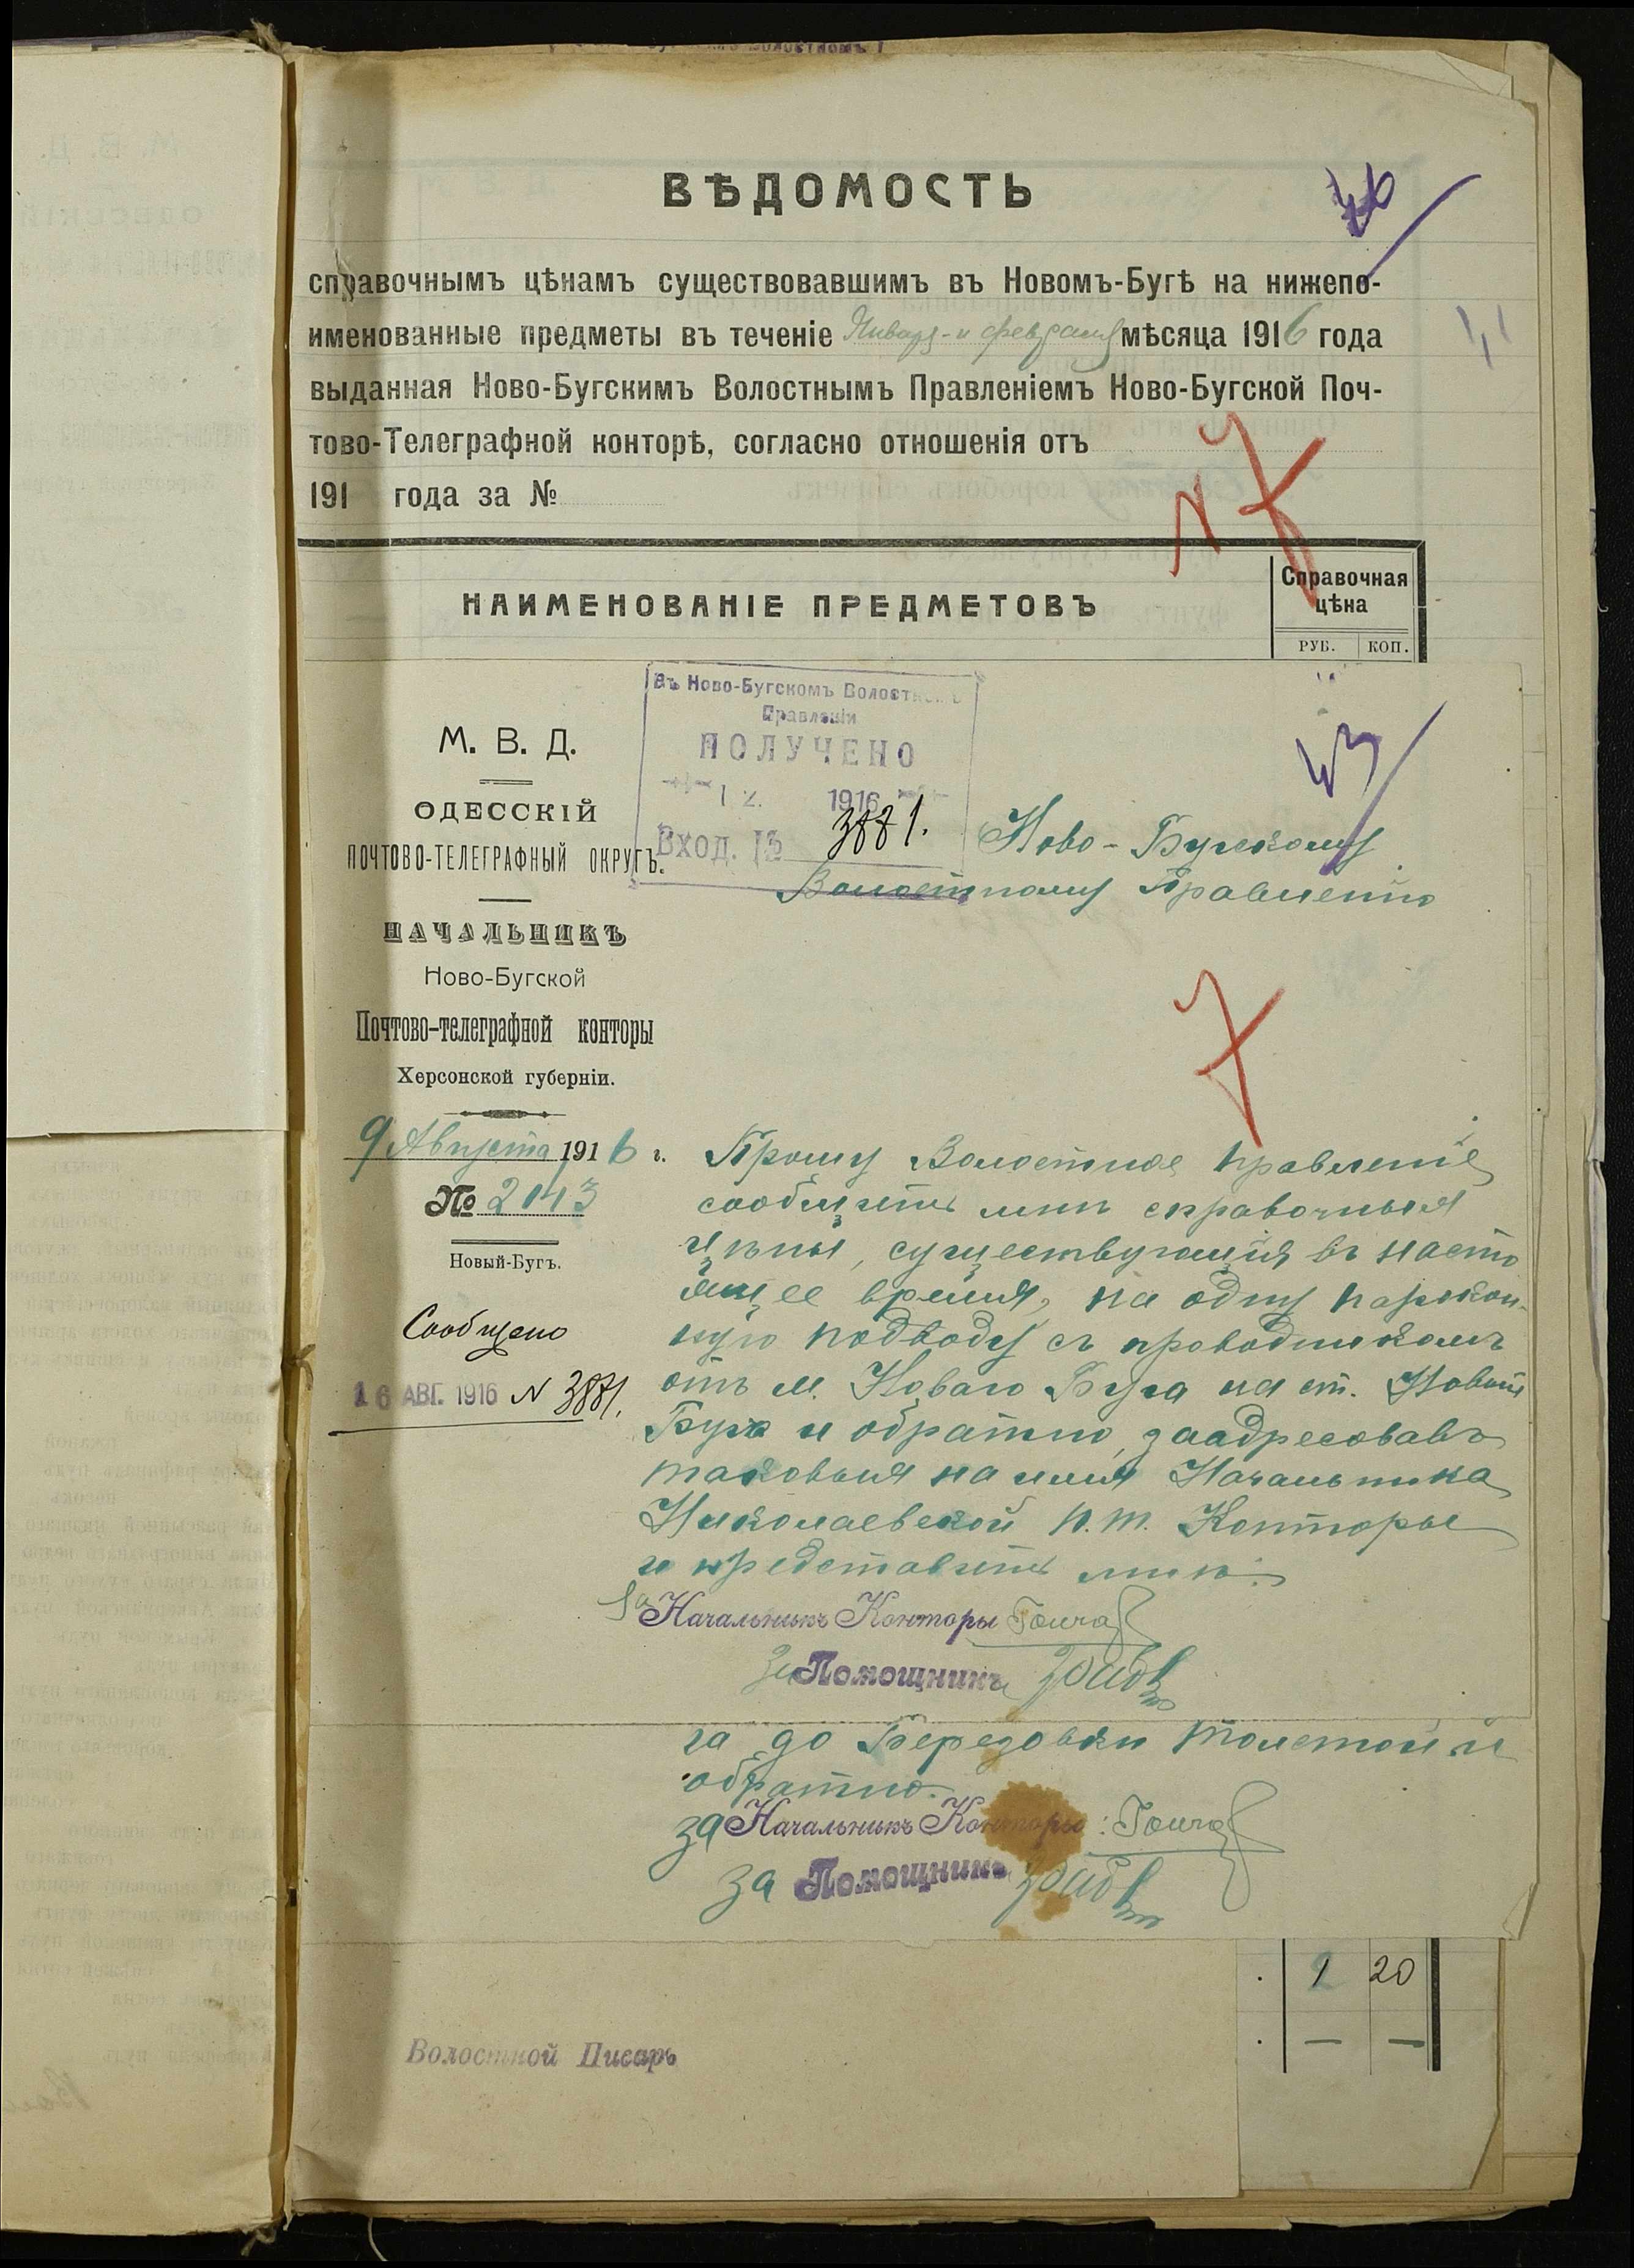 ВѢДОМОСТЬ
справочнымъ цѣнамъ существовавшимъ въ Новомъ-Бугѣ на нижепо-
именованные предметы въ теченіе Январь-и февраля мѣсяца 1916 года
выданная Ново-Бугскимъ Волостнымъ Правленіемъ Ново-Бугской Поч-
тово-Телеграфной конторѣ, согласно отношенія отъ
191 года за №
N 7
НАИМЕНОВАНІЕ ПРЕДМЕТОВЪ
Справочная
цѣна
РУБ. КОП.
Въ Ново-Бугскомъ Волостномъ
Правленіи
ПОЛУЧЕНО
12. 1916
Вход. № 3881.
43
М. В. Д.
ОДЕССКІЙ
ПОЧТОВО-ТЕЛЕГРАФНЫЙ ОКРУГЪ.
НАЧАЛЬНИКЪ
Ново-Бугской
Почтово-телеграфной конторы
Херсонской губерніи.
9 Августа 1916 г.
№ 2143
Новый-Бугъ.
Сообщено
16 АВГ. 1916 N 3881.
Ново-Бугскому
Волостному Правленію
7
Прошу Волостное правленіе
сообщить мнѣ справочныя
цѣны, существующія въ насто
ящее время, на одну парокон-
ную подводу съ проводникомъ
отъ м. Новаго Буга на ст. Новый
Бугъ и обратно, заадресовавъ
таковыя на имя Начальника
Николаевской п.т. Конторы
и представить мнѣ.
За Начальникъ Конторы
За Помощникъ
га до Березовки Толстой и
обратно.
за Начальникъ Конторы:
за Помощникъ
1 20
— —
Волостной Писарь